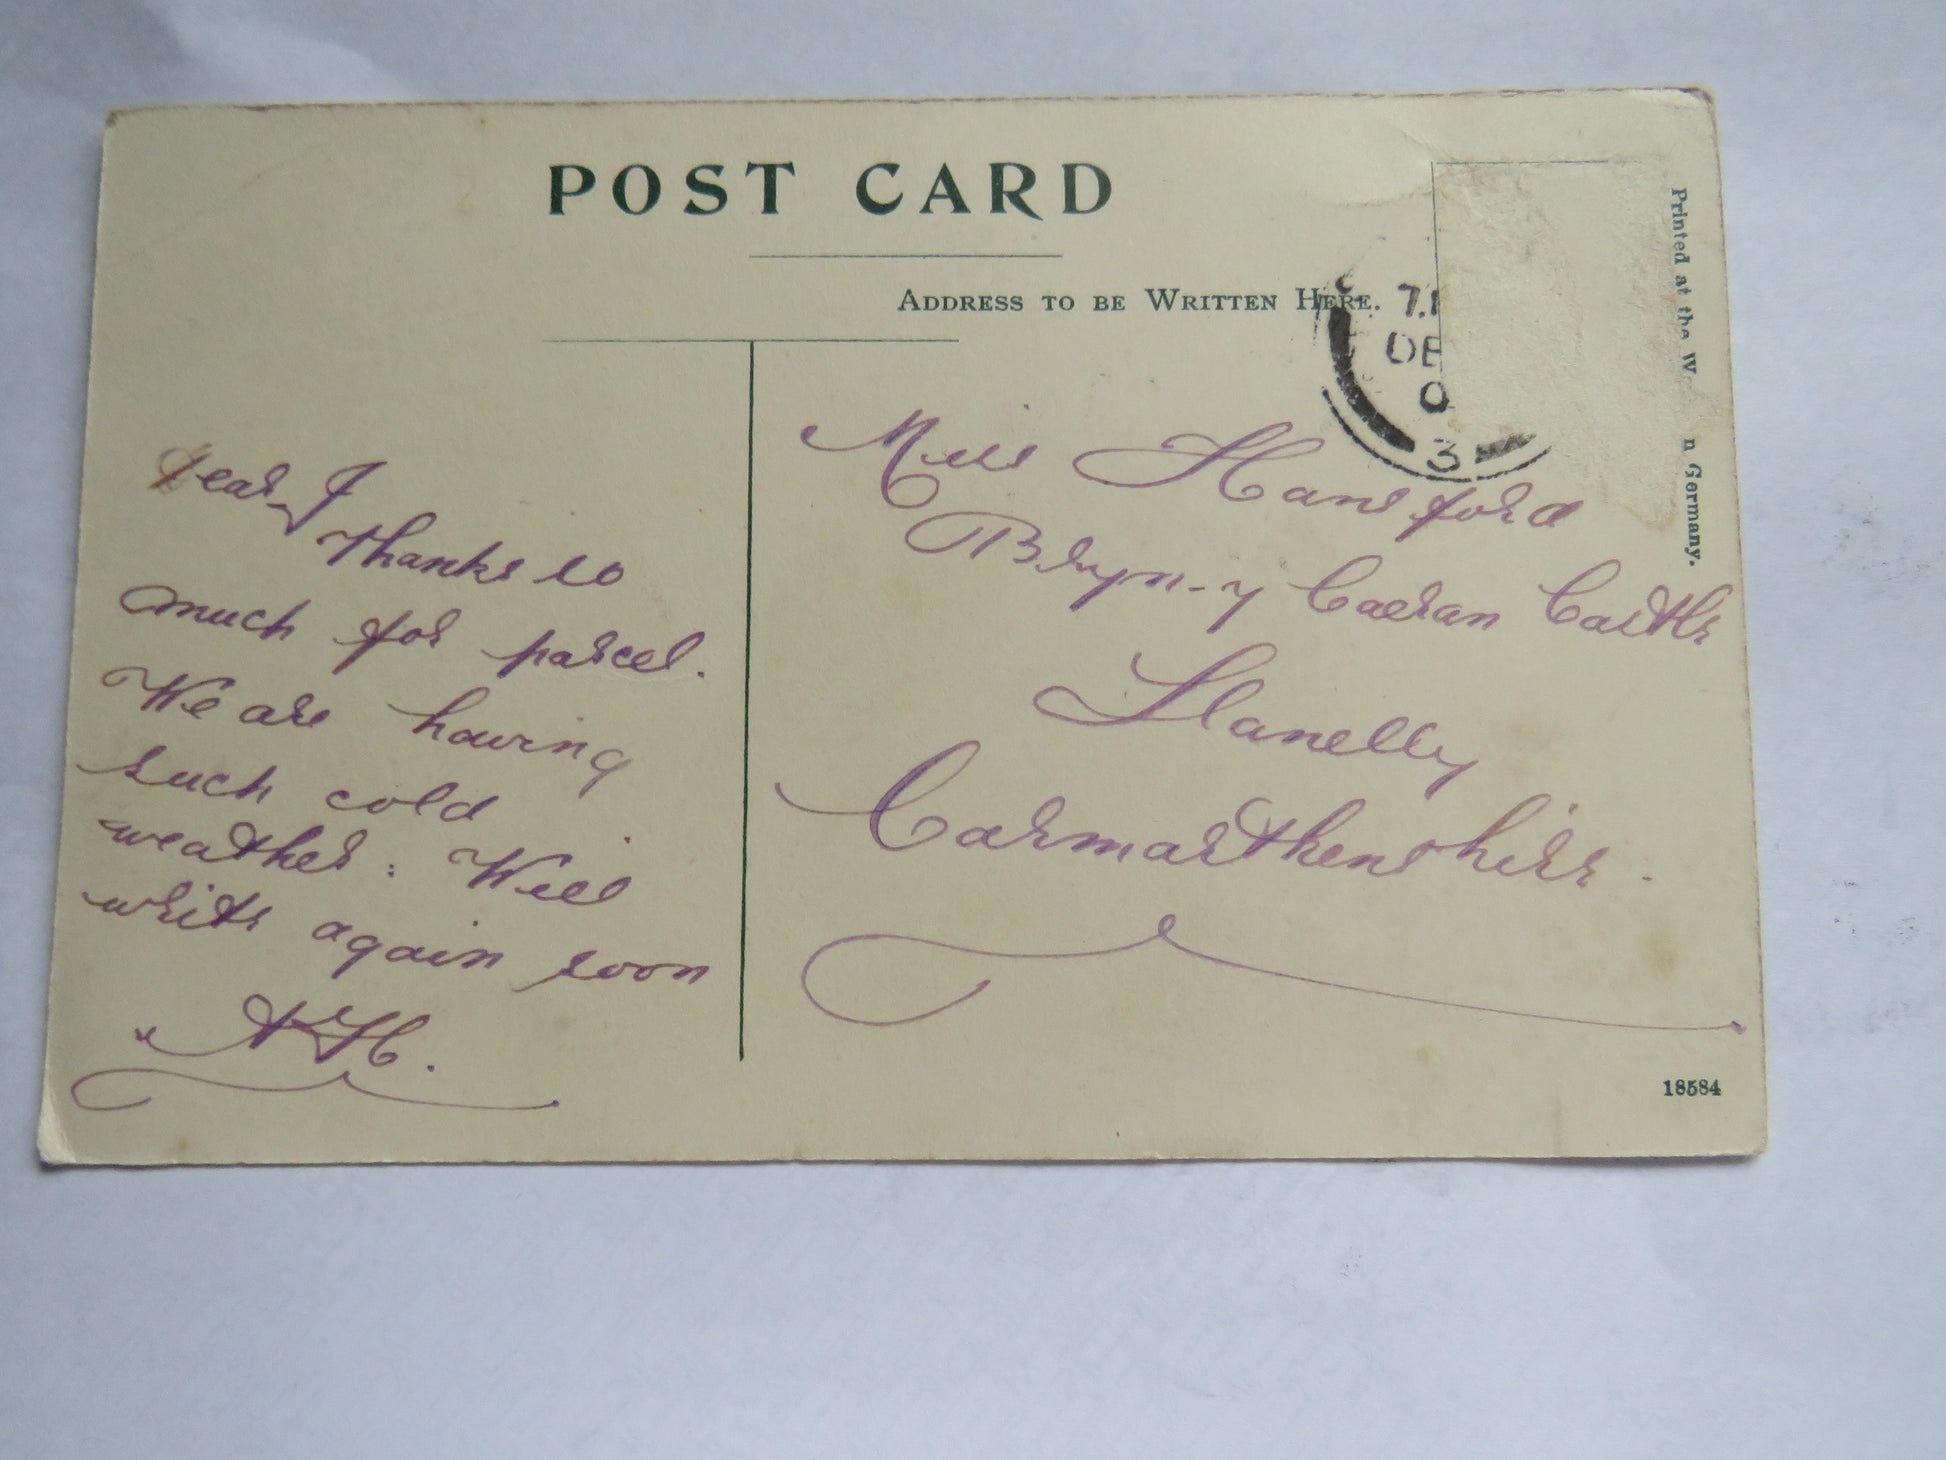 POST CARD
ADDRESS TO BE WRITTEN HERE.
Printed at the W n Germany.
7.1
DE
0
3
Dear J
Thanks so
much for parcel.
We are having
such cold
weather. Will
write again soon
A H.
Miss Hansford
Bryn-y Caeran Castle
Llanelly
Carmarthenshire.
18584